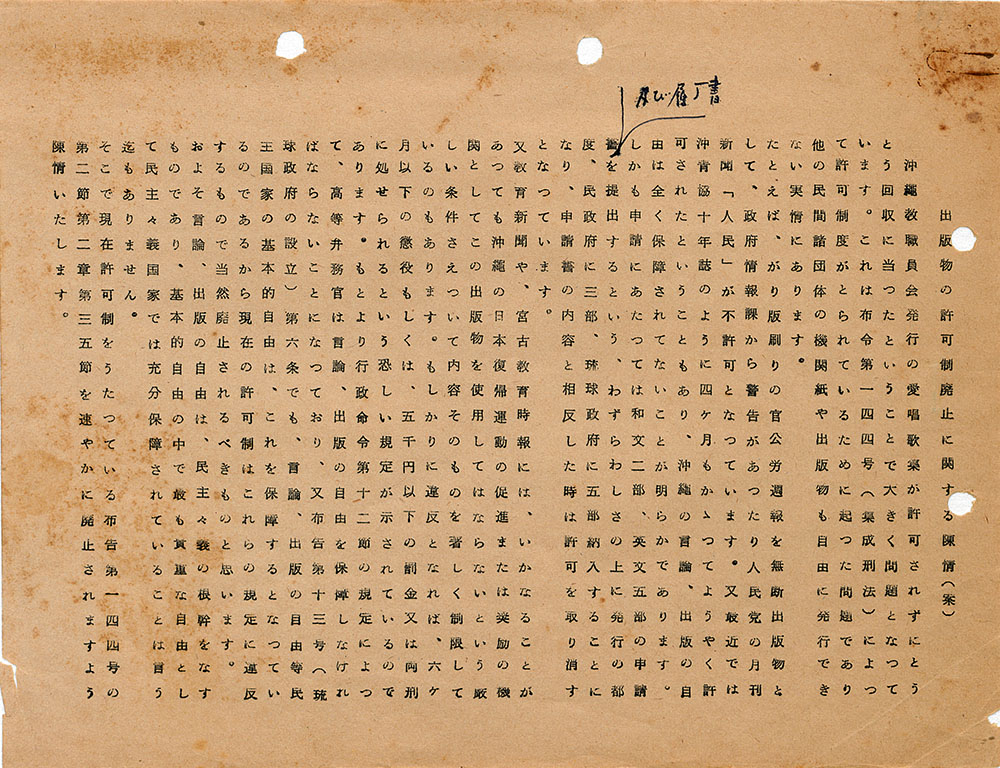 出版物の許可制廃止に関する陳情(案)
沖縄教職員会発行の愛唱歌集が許可されずにとう
とう回収に当つたということで大きく問題となつて
います。これは布令第一四四号(集成刑法)によつ
て許可制度がとられているために起つた問題であり
他の民間諸団体の機関紙や出版物も自由に発行でき
ない実情にあります。
たとえば、がり版刷りの官公労週報を無断出版物と
して、政府情報課から警告があつたり人民党の月刊
新聞「人民」が不許可となつています。又最近では
沖青協十年誌のように四ケ月もかゝつてようやく許
可されたということもあり、沖縄の言論、出版の自
由は全く保障されてないことが明らかであります。
しかも申請にあたつては和文二部、英文五部の申請
書を提出するという、わずらわしさの上に発行の都
及び履丁書
度、民政府に三部、琉球政府に五部納入することに
なり、申請書の内容と相反した時は許可を取り消す
となつています。
又教育新聞や、宮古教育時報には、いかなることが
あつても沖縄の日本復帰運動の促進または奨励の機
関としてこの出版物を使用してはならないという厳
しい条件さえついて内容そのものを著しく制限して
いるのもあります。もしかりに違反となれば、六ケ
月以下の懲役もしくは、五千円以下の罰金又は両刑
に処せられるという恐しい規定が示されているので
あります。もともとより行政命令第十二節の規定によつ
て、高等弁務官は言論、出版の自由を保障しなけれ
ばならないことになつており、又布告第十三号(琉
球政府の設立)第六条でも、言論、出版の自由等民
主国家の基本的自由は、これを保障するとなつてい
るのであるから現在の許可制はこれらの規定に違反
するもので当然廃止されるべきものと思います。
およそ言論、出版の自由は、民主々義の根幹をなす
ものであり、基本的自由の中で最も貴重な自由とし
て民主々義国家では充分保障されていることは言う
迄もありません。
そこで現在許可制をうたつている布告第一四四号の
第二節第二章第三五節を速やかに廃止されますよう
陳情いたします。